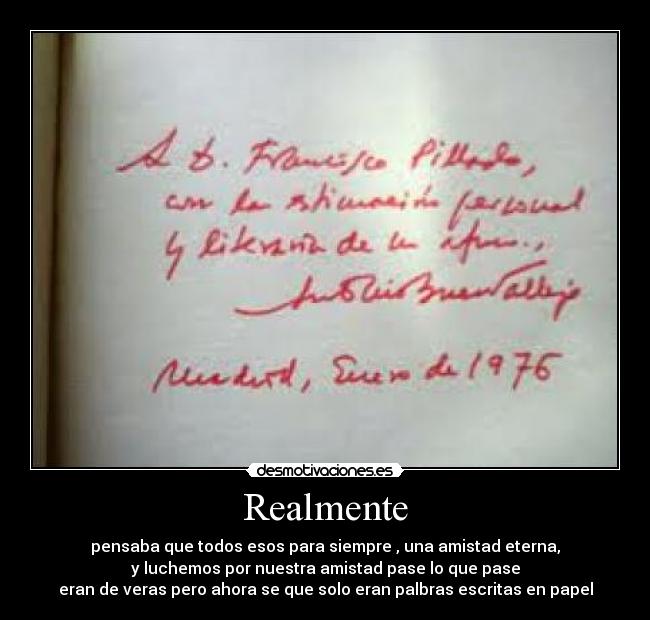 A D. Francisco Pillado,
con la estimación personal
y literaria de su afmo.,
Antonio Buero Vallejo
Madrid, Enero de 1976
desmotivaciones.es
Realmente
pensaba que todos esos para siempre , una amistad eterna,
y luchemos por nuestra amistad pase lo que pase
eran de veras pero ahora se que solo eran palbras escritas en papel